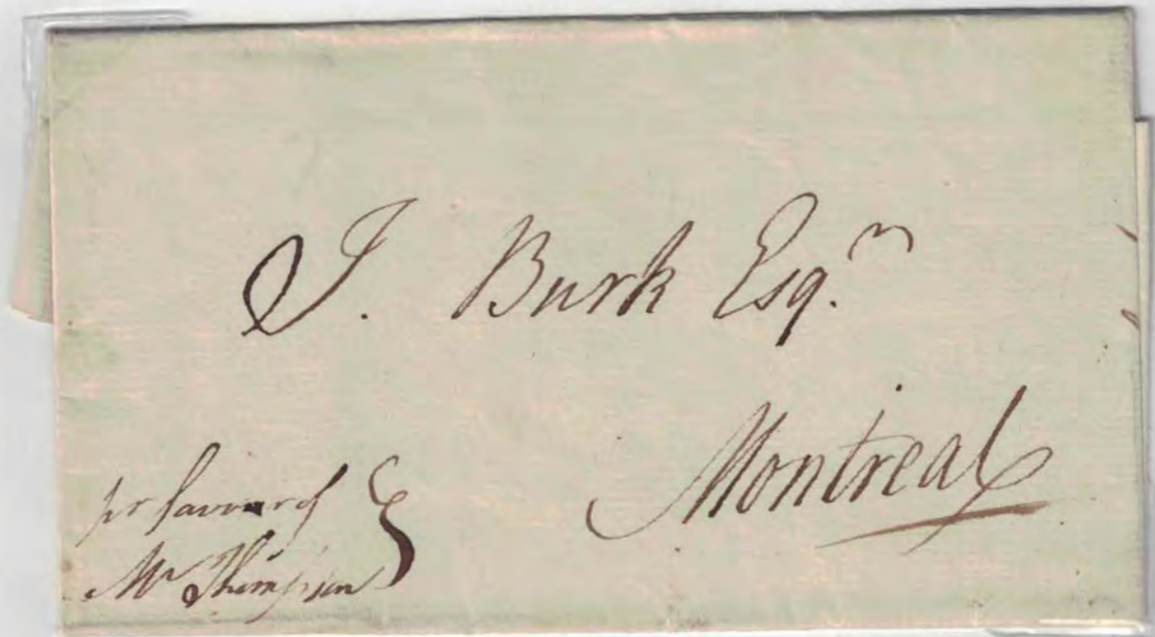 J. Burk Esqr.
Montreal
pr favour of
Mr Thompson